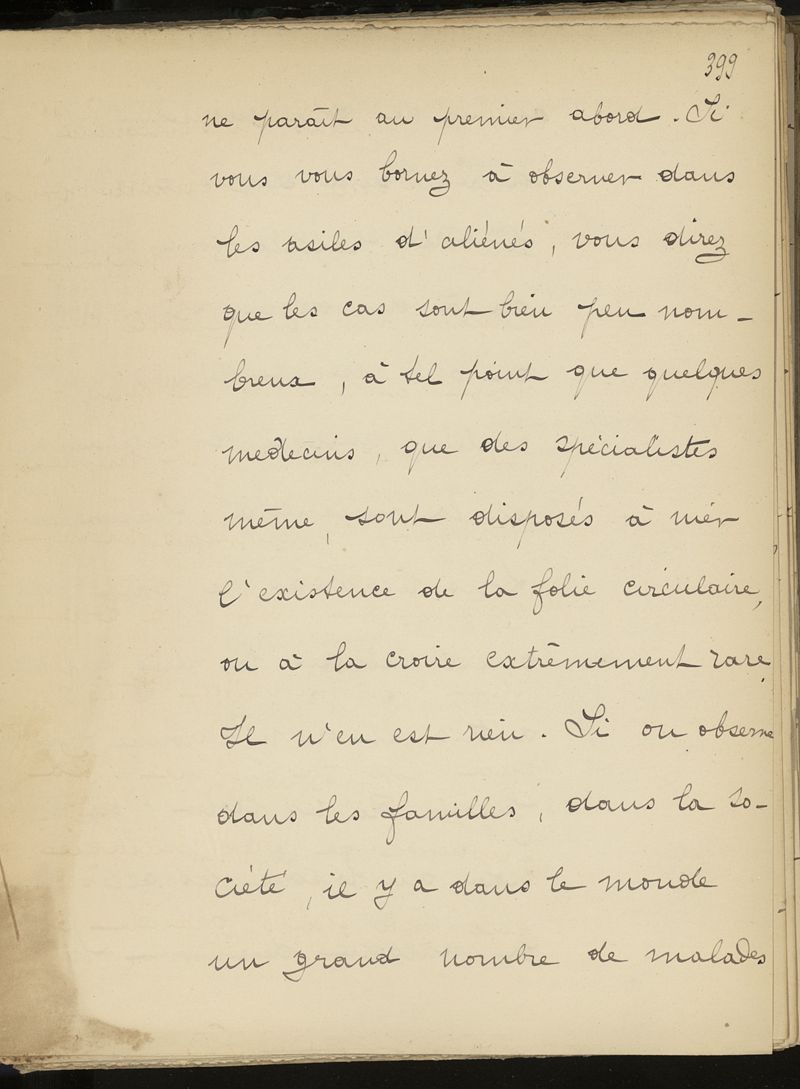 399
ne paraît au premier abord. Si
vous vous bornez à observer dans
les asiles d'aliénés, vous direz
que les cas sont bien peu nom-
breux, à tel point que quelques
medecins, que des spécialistes
même, sont disposés à nier
l'existence de la folie circulaire,
ou à la croire extrêmement rare.
Il n'en est rien. Si on observe
dans les familles, dans la so-
ciété, il y a dans le monde
un grand nombre de malades